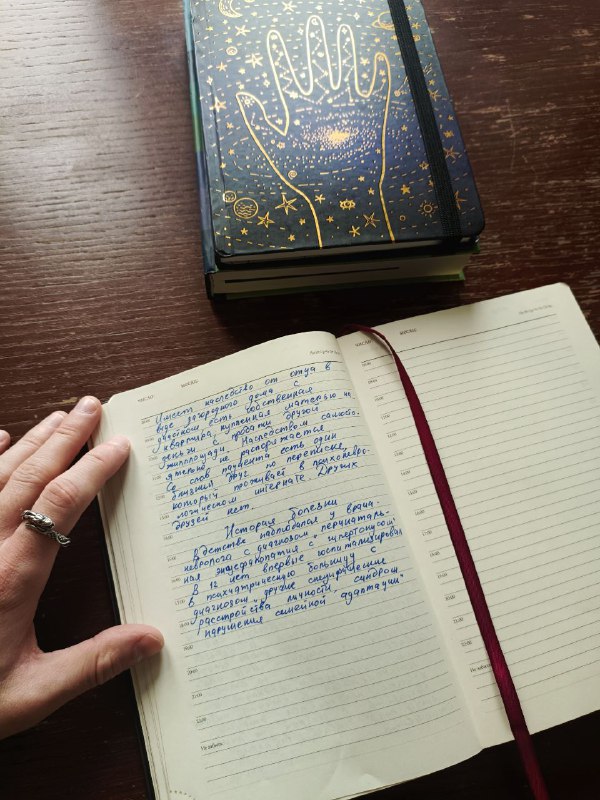 ЧИСЛО МЕСЯЦ
Имеет наследство от отца в
виде загородного дома с
участком, есть собственная
квартира, купленная матерью на
деньги с продажи другой
жилплощади. Наследством самост-
оятельно не распоряжается.
Со слов пациента есть один
близкий друг по переписке,
который проживает в психоневро-
логическом интернате. Других
друзей нет.
История болезни
В детстве наблюдался у врача-
невролога с диагнозом „перинаталь-
ная энцефалопатия с гипертонусом"
В 12 лет впервые госпитализирован
в психиатрическую больницу с
диагнозом „другие специфические
расстройства личности, синдром
нарушения семейной адаптации"
19:00
20:00
21:00
22:00
Не забыть
ЧИСЛО МЕСЯЦ
Не забыть